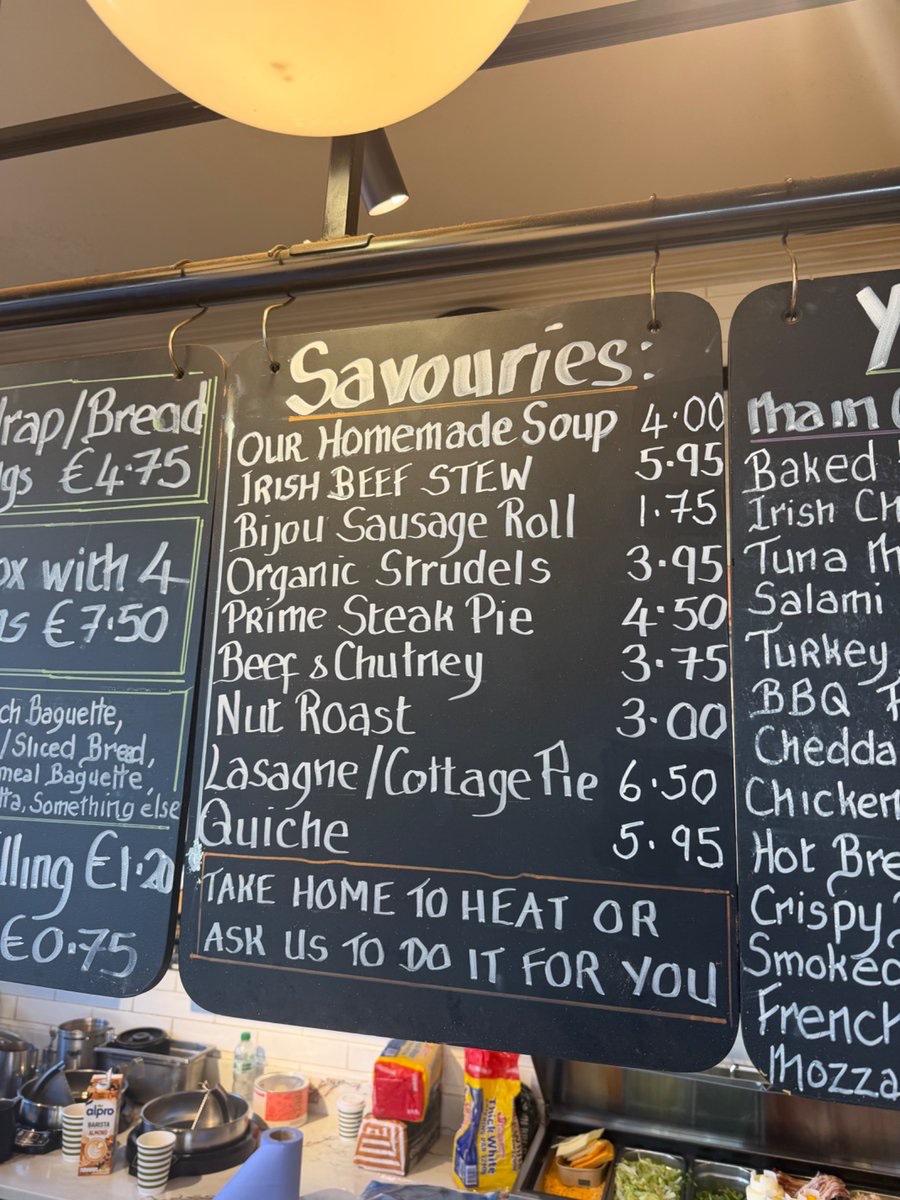 Wrap/Bread
€4.75
with 4
€7.50
Baguette,
/Sliced Bread,
Baguette,
Something else
€1.20
€0.75
Savouries:
OUR Homemade Soup 4.00
IRISH BEEF STEW 5.95
Bijou Sausage Roll 1.75
Organic Strudels 3.95
Prime Steak Pie 4.50
Beef & Chutney 3.75
Nut Roast 3.00
Lasagne/Cottage Pie 6.50
Quiche 5.95
TAKE HOME TO HEAT OR
ASK US TO DO IT FOR YOU
Main
Baked
Irish
Tuna
Salami
Turkey
BBQ
Chedda
Chicken
Hot
Crispy
Smoked
French
Mozza
alpro
BARISTA
ALMOND
Thick White